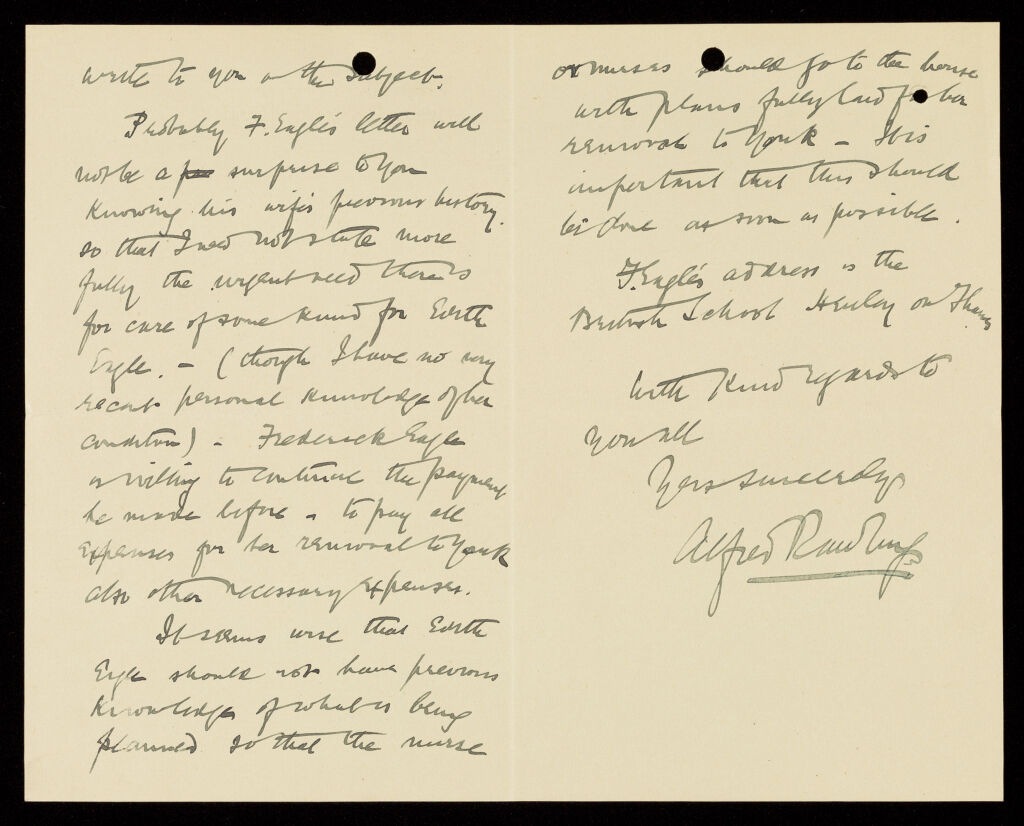 write to you on the subject.
Probably F. Eagle's letter will
not be a surprise to you
knowing his wife's previous history,
so that I need not state more
fully the urgent need there is
for care of some kind for Edith
Eagle. – (though I have no very
recent personal knowledge of her
condition) – Frederick Eagle
is willing to continue the payment
he made before – to pay all
expenses for her removal to York
also other necessary expenses.
It seems wise that Edith
Eagle should not have previous
knowledge of what is being
planned so that the nurse
or nurses should go to the house
with plans fully laid for her
removal to York – It is
important that this should
be done as soon as possible.
F. Eagle's address is the
British School Henley on Thames
With kind regards to
you all
Yours sincerely
Alfred Rawlings